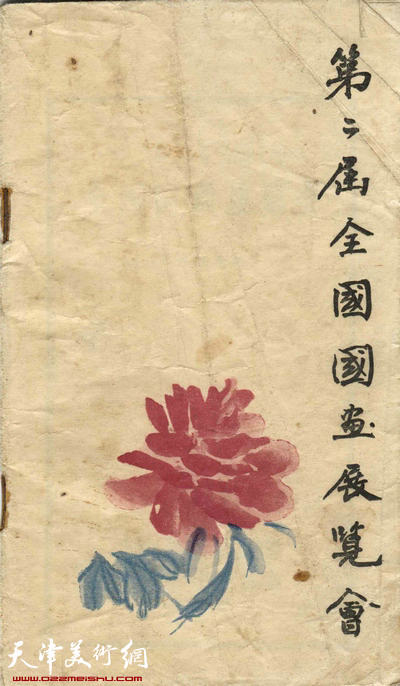 第二届全國國画展覽會
天津美術網
www.022meishu.com